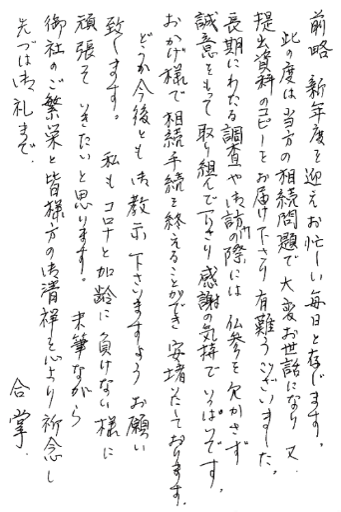 前略 新年度を迎えお忙しい毎日と存じます。
此の度は当方の相続問題で大変お世話になり 又、
提出資料のコピーをお届け下さり有難うございました。
長期にわたる調査や御訪問の際には 仏参を欠かさず
誠意をもって取り組んで下さり感謝の気持でいっぱいです。
おかげ様で相続手続を終えることができ 安堵いたしております。
どうか今後とも御教示下さいますよう お願い
致します。 私もコロナと加齢に負けない様に
頑張っていきたいと思います。 末筆ながら
御社のご繁栄と皆様方の御清祥を心より祈念し
先づは御礼まで。
合掌.